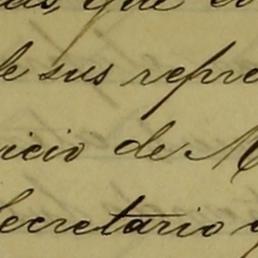 que
de sus repre
icio de M
Secretario y